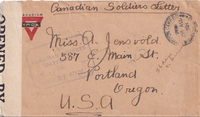 Canadian Soldiers Letter
OPENED BY
Miss A. Jensvold
587 E. Main St.
Portland
Oregon.
U.S.A